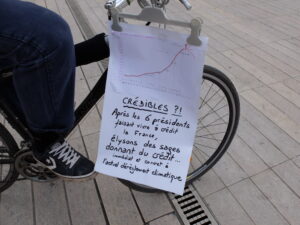 CRÉDIBLES ?!
Après les 6 présidents
faisant vivre à crédit
la France,
Élysons des sages
donnant du crédit...
immédiat et concret à
l'actuel dérèglement climatique